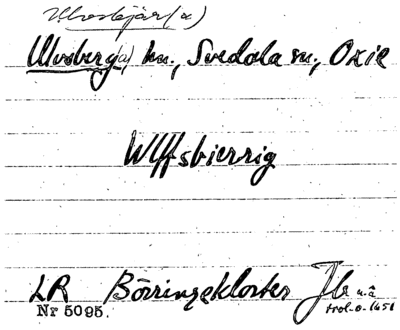 Ulvsbjär(a)
Ulvsberg(a) hn., Svedala sn., Oxie
Wlffsbierrig
LR Börringekloster Jb u.å
Nr 5095. trol. o. 1651